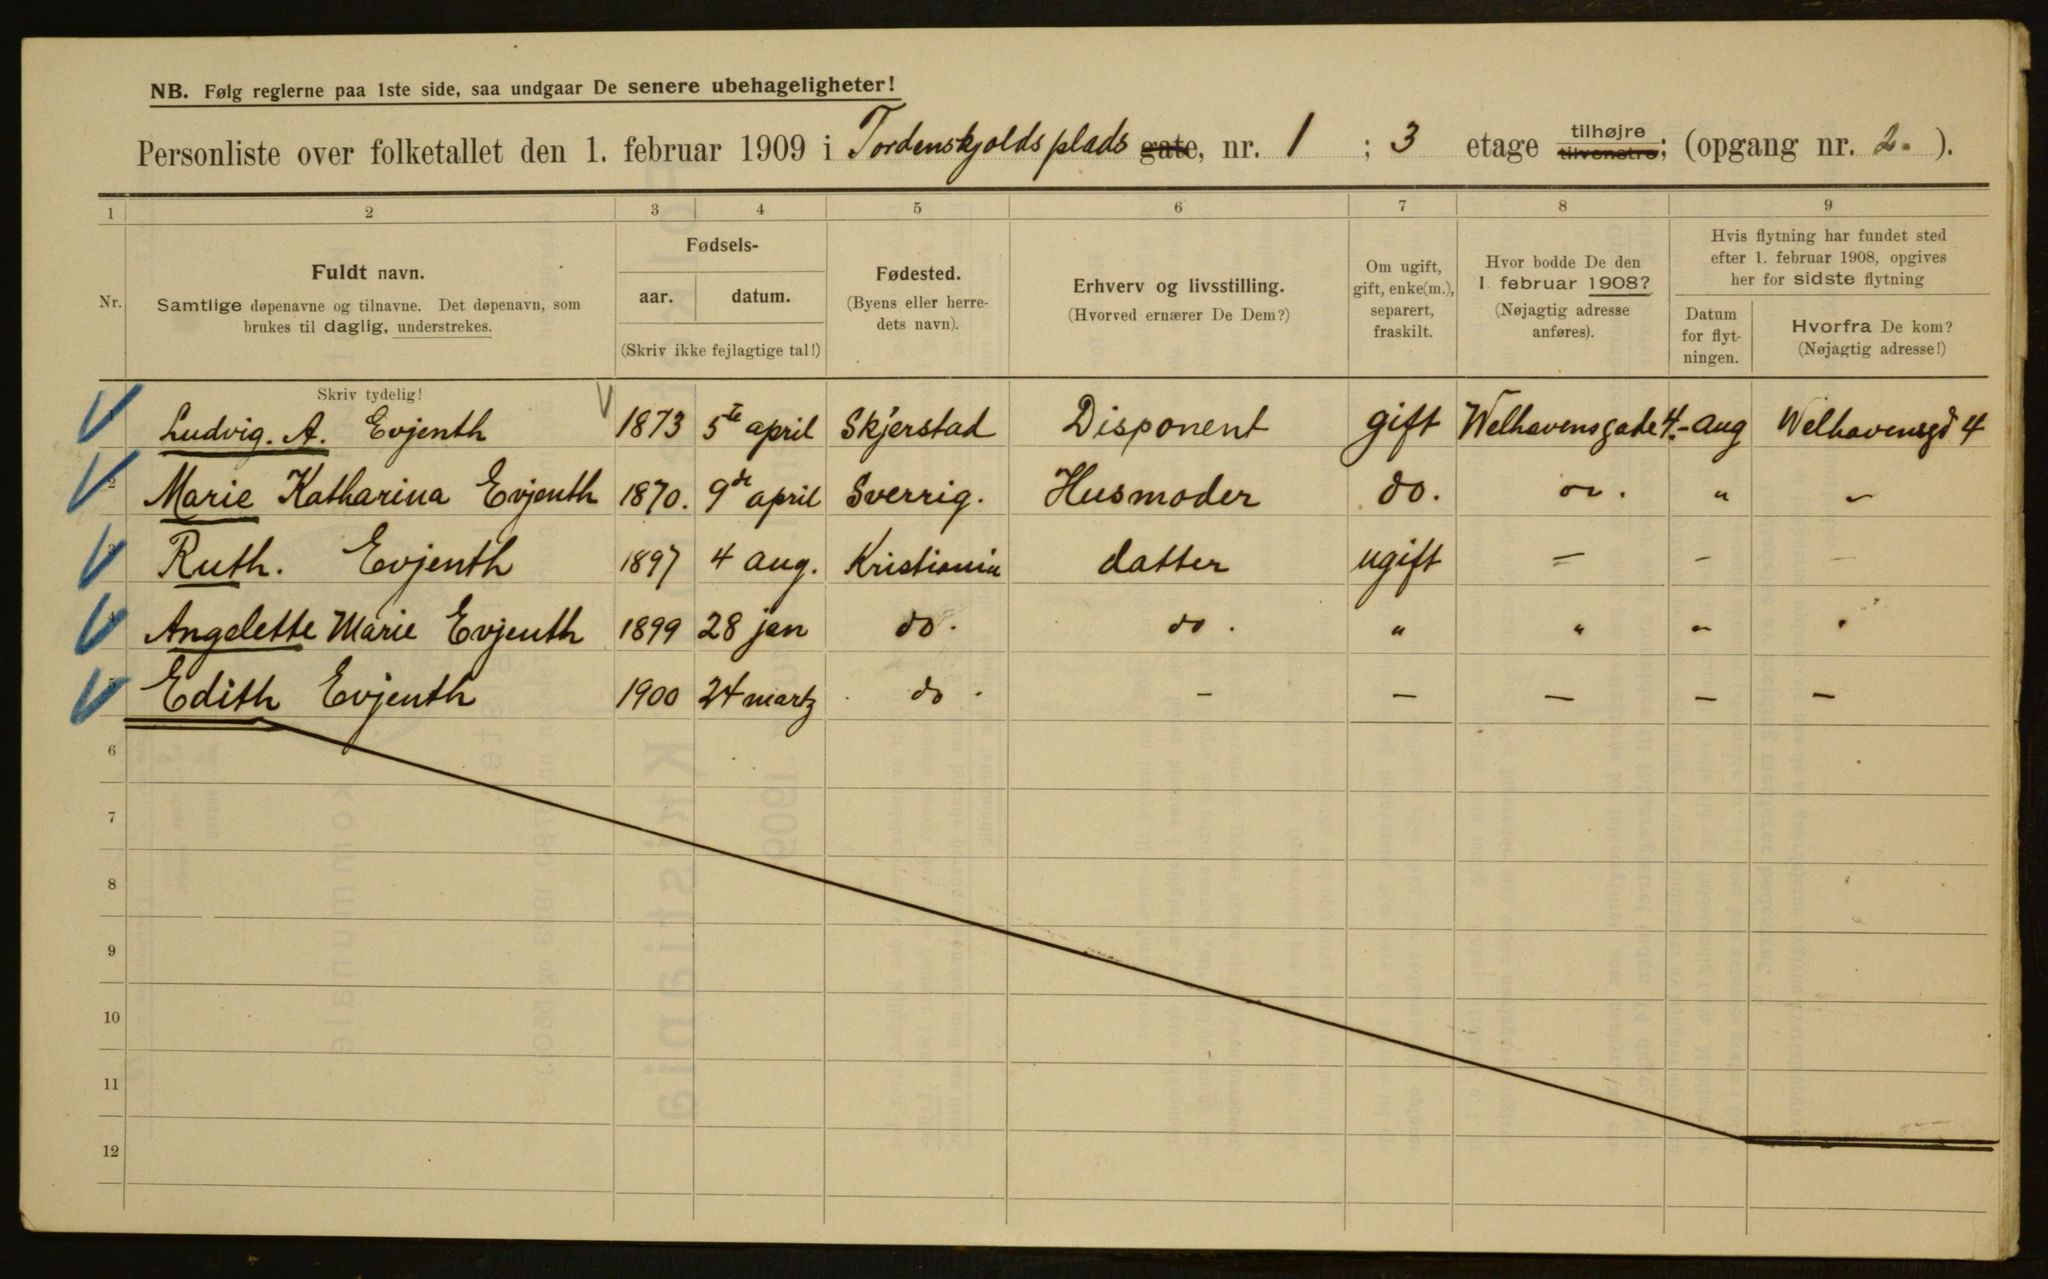 NB. Følg reglerne paa 1ste side, saa undgaar De senere ubehageligheter!
Personliste over folketallet den 1. februar 1909 i Tordenskjolds plads gate, nr. 1 ; 3 etage tilhøjre tilvenstre; (opgang nr. 2. ).
1 2 3 4 5 6 7 8 9
Nr.
Fuldt navn.
Samtlige døpenavne og tilnavne. Det døpenavn, som
brukes til daglig, understrekes.
Fødsels-
aar. datum.
(Skriv ikke fejlagtige tal!)
Fødested.
(Byens eller herre-
dets navn).
Erhverv og livsstilling.
(Hvorved ernærer De Dem?)
Om ugift,
gift, enke(m.),
separert,
fraskilt.
Hvor bodde De den
1. februar 1908?
(Nøjagtig adresse
anføres).
Hvis flytning har fundet sted
efter 1. februar 1908, opgives
her for sidste flytning
Datum
for flyt-
ningen.
Hvorfra De kom?
(Nøjagtig adresse!)
Skriv tydelig!
1 Ludvig. A. Evjenth 1873 5te april Skjerstad Disponent gift Welhavensgade 4.- aug Welhavensgd 4
2 Marie Katharina Evjenth 1870. 9de april Sverrig. Husmoder do. " "
3 Ruth. Evjenth 1897 4 aug. Kristiania datter ugift = - -
4 Angelette Marie Evjenth 1899 28 jan do. do. " " " "
5 Edith Evjenth 1900 24 martz do. - - - - -
6
7
8
9
10
11
12